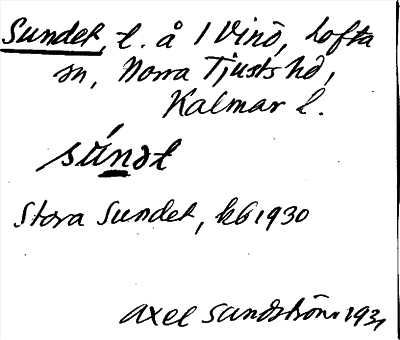 Sundet, t. å 1 Vinö, Lofta
sn, Norra Tjusts hd,
Kalmar l.
súndt
Stora Sundet, kb 1930
Axel Sandström 1931